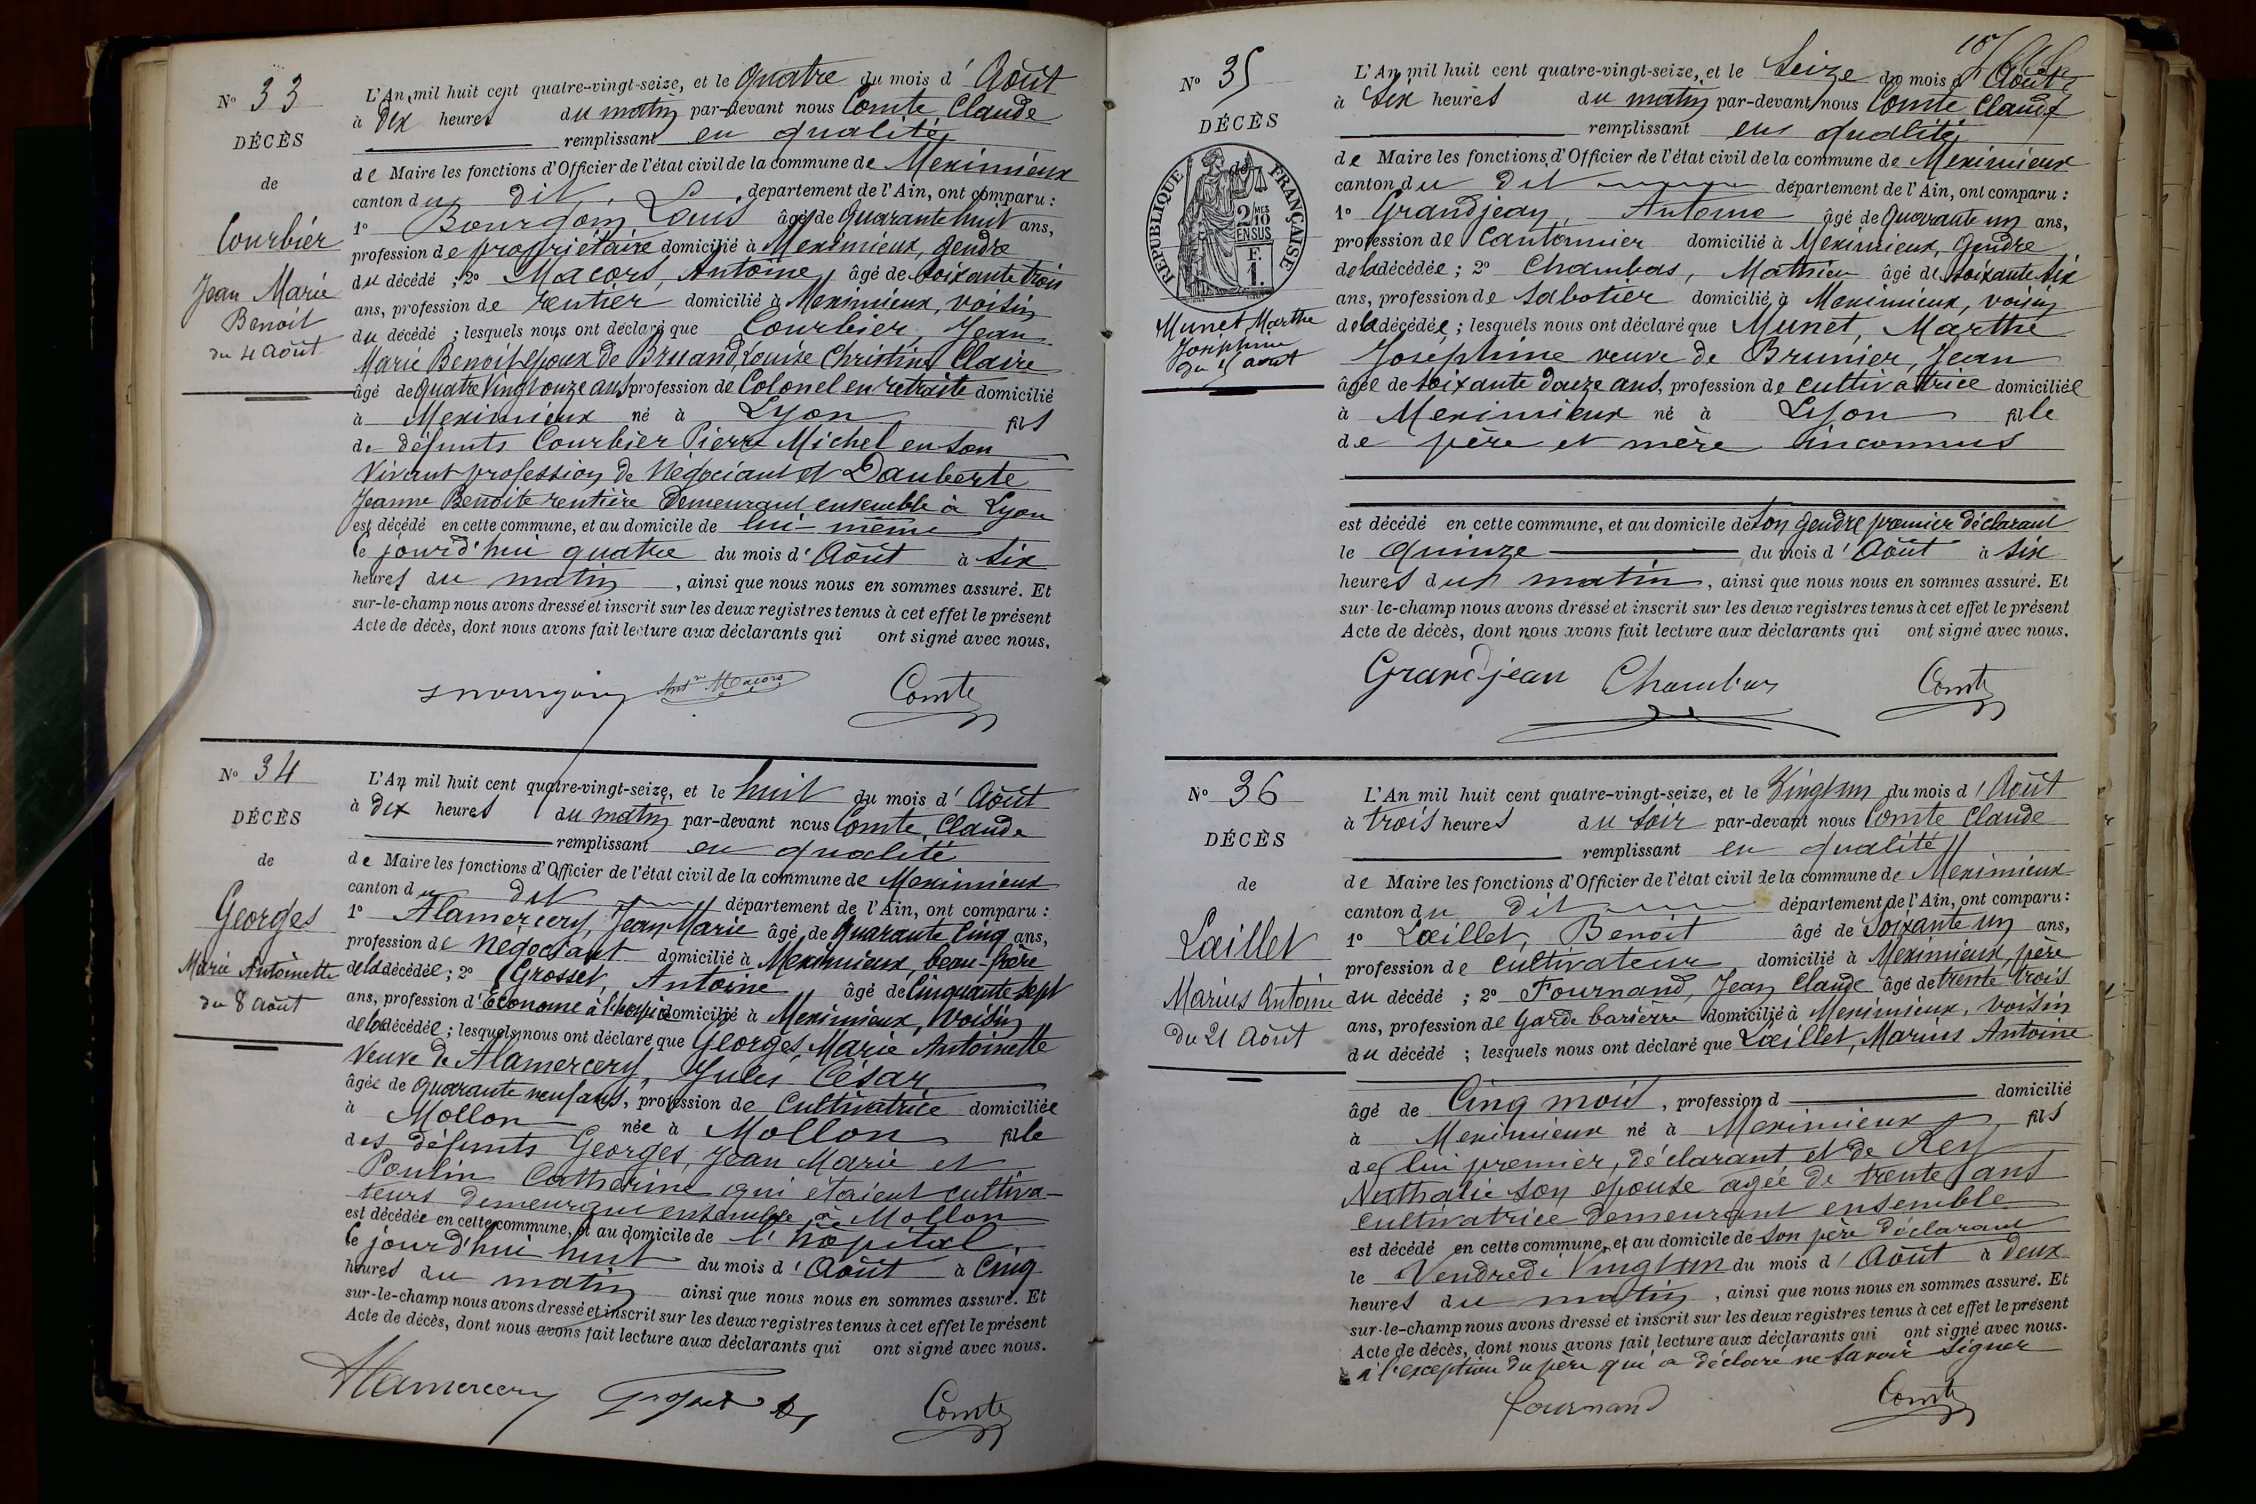 No 33
DÉCÈS
de
Courbier
Jean Marie
Benoit
du 4 Août
L'An mil huit cent quatre-vingt-seize, et le quatre du mois d'Août
à dix heures du matin par-devant nous Comte Claude
remplissant en qualité
de Maire les fonctions d'Officier de l'état civil de la commune de Meximieux
canton du dit département de l'Ain, ont comparu :
1o Bourgoin Louis âgé de quarante huit ans,
profession de propriétaire domicilié à Meximieux, gendre
du décédé ; 2o Macors, Antoine, âgé de soixante trois
ans, profession de rentier domicilié à Meximieux, voisin
du décédé ; lesquels nous ont déclaré que Courbier, Jean
Marie Benoit époux de Bruand, Louise Christine Claire
âgé de quatre vingt onze ans profession de Colonel en retraite domicilié
à Meximieux né à Lyon fils
de défunts Courbier Pierre Michel en son
vivant profession de Négociant et Dauberte
Jeanne Benoite rentière demeurant ensemble à Lyon
est décédé en cette commune, et au domicile de lui-même
le jourd'hui quatre du mois d'Août à six
heures du matin, ainsi que nous nous en sommes assuré. Et
sur-le-champ nous avons dressé et inscrit sur les deux registres tenus à cet effet le présent
Acte de décès, dont nous avons fait lecture aux déclarants qui ont signé avec nous.
Macors Comte
No 34
DÉCÈS
de
Georges
Marie Antoinette
du 8 août
L'An mil huit cent quatre-vingt-seize, et le huit du mois d'Août
à dix heures du matin par-devant nous Comte Claude
remplissant en qualité
de Maire les fonctions d'Officier de l'état civil de la commune de Meximieux
canton du dit département de l'Ain, ont comparu :
1o Alamercery, Jean Marie âgé de quarante cinq ans,
profession de négociant domicilié à Meximieux, beau-frère
de la décédée ; 2o Grosset, Antoine âgé de cinquante sept
ans, profession d'Econome à l'hospice domicilié à Meximieux, voisin
de la décédée ; lesquels nous ont déclaré que Georges, Marie Antoinette
Veuve de Alamercery, Jules César
âgée de quarante neuf ans, profession de cultivatrice domiciliée
à Mollon née à Mollon fille
des défunts Georges, Jean Marie et
Poulin Catherine qui étaient cultiva-
teurs demeurant ensemble à Mollon
est décédée en cette commune, et au domicile de l'hôpital
le jourd'hui huit du mois d'Août à cinq
heures du matin ainsi que nous nous en sommes assuré. Et
sur-le-champ nous avons dressé et inscrit sur les deux registres tenus à cet effet le présent
Acte de décès, dont nous avons fait lecture aux déclarants qui ont signé avec nous.
Alamercery Comte
No 35
DÉCÈS
de
RÉPUBLIQUE FRANÇAISE
2/10 MES
EN SUS
F.
1.
Munet Marthe
Josephine
L'An mil huit cent quatre-vingt-seize, et le seize du mois d'Août
à six heures du matin par-devant nous Comte Claude
remplissant en qualité
de Maire les fonctions d'Officier de l'état civil de la commune de Meximieux
canton du dit département de l'Ain, ont comparu :
1o Grandjean, Antoine âgé de quarante un ans,
profession de cantonnier domicilié à Meximieux, gendre
de la décédée ; 2o Chambas, Mathieu âgé de soixante six
ans, profession de sabotier domicilié à Meximieux, voisin
de la décédée ; lesquels nous ont déclaré que Munet, Marthe
Joséphine veuve de Brunier, Jean
âgée de soixante douze ans, profession de cultivatrice domiciliée
à Meximieux né à Lyon fille
de père et mère inconnus
est décédé en cette commune, et au domicile de son gendre premier déclarant
le quinze du mois d'Août à six
heures du matin, ainsi que nous nous en sommes assuré. Et
sur-le-champ nous avons dressé et inscrit sur les deux registres tenus à cet effet le présent
Acte de décès, dont nous avons fait lecture aux déclarants qui ont signé avec nous.
Grandjean Chambas Comte
No 36
DÉCÈS
de
Lœillet
Marius Antoine
du 21 Août
L'An mil huit cent quatre-vingt-seize, et le Vingt un du mois d'Août
à trois heures du soir par-devant nous Comte Claude
remplissant en qualité
de Maire les fonctions d'Officier de l'état civil de la commune de Meximieux
canton du dit département de l'Ain, ont comparu :
1o Lœillet, Benoit âgé de soixante un ans,
profession de cultivateur domicilié à Meximieux, père
du décédé ; 2o Fournand, Jean Claude âgé de trente trois
ans, profession de Garde barièrre domicilié à Meximieux, voisin
du décédé ; lesquels nous ont déclaré que Lœillet, Marius Antoine
âgé de Cinq mois, profession d domicilié
à Meximieux né à Meximieux fils
de lui premier, déclarant et de Rey
Nathalie son épouse agée de trente ans
cultivatrice demeurant ensemble
est décédé en cette commune, et au domicile de son père déclarant
le Vendredi Vingt un du mois d'Août à deux
heures du matin, ainsi que nous nous en sommes assuré. Et
sur-le-champ nous avons dressé et inscrit sur les deux registres tenus à cet effet le présent
Acte de décès, dont nous avons fait lecture aux déclarants qui ont signé avec nous.
à l'exception du père qui a déclaré ne savoir signer
Fournand Comte